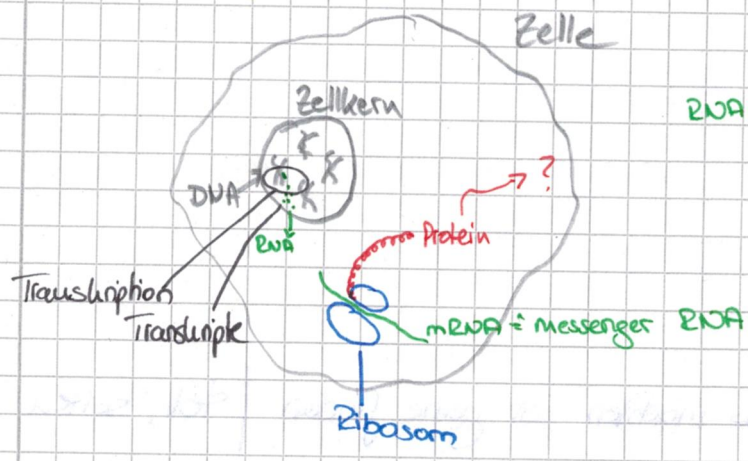 Zelle
Zellkern
RNA
DNA
?
Protein
RNA
Transkription
Transkripte
mRNA ≙ messenger RNA
Ribosom